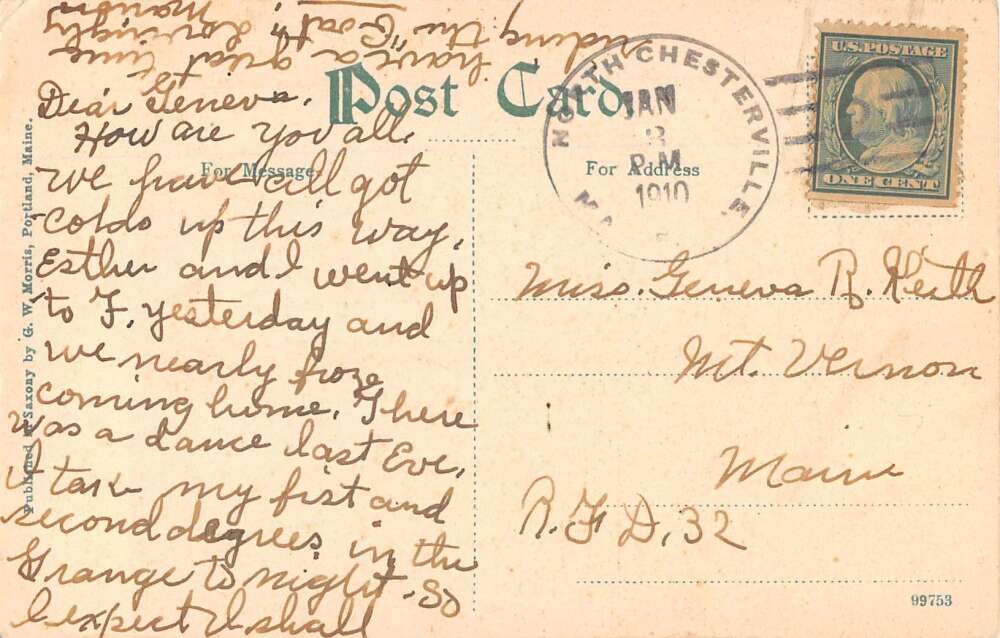 Dear Geneva.
How are you all.
We have all got
colds up this way.
Esther and I went up
to F. yesterday and
we nearly froze
coming home. There
was a dance last Eve.
I take my fist and
second degrees in the
Grange to night. So
I expect I shall
have a great time
riding the "Goat". Lovingly
Marion
Post Card
For Message
For Address
NORTH CHESTERVILLE
JAN
3
P.M
1910
U.S. POSTAGE
ONE CENT
Miss. Geneva R. Keith
Mt. Vernon
Maine
R. F. D. 32
99753
Published in Saxony by G. W. Morris, Portland, Maine.